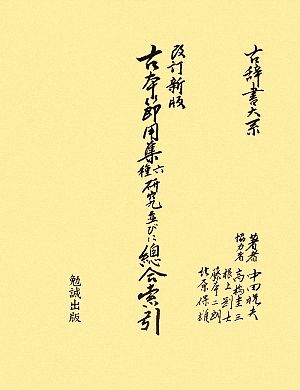 古辞書大系
著者 中田祝夫
協力者 高橋
根上剛士
藤本二郎
北原保雄
改訂新版
古本節用集六種研究並びに總合索引
勉誠出版